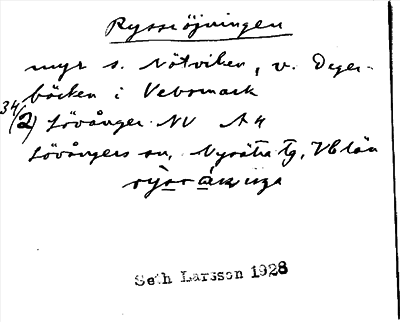 Ryssröjningen
myr s. Nötviken, v. Deger-
bäcken i Vebomark
34(2) Lövånger NV A4
Lövångers sn, Nysätra tg, Vb län
Seth Larsson 1928